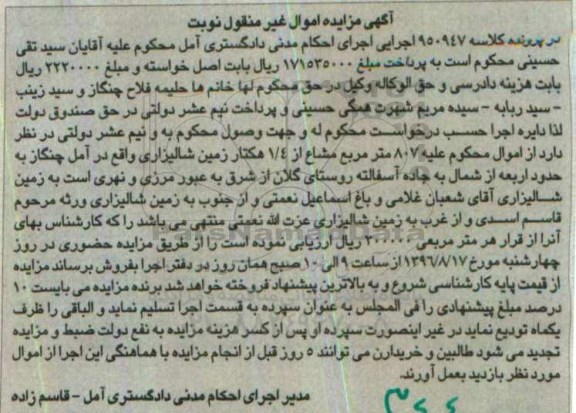 آگهی مزایده اموال غیر منقول نوبت
در پرونده کلاسه ۹۵۰۹۴۷ اجرایی اجرای احکام مدنی دادگستری آمل محکوم علیه آقایان سید تقی
حسینی محکوم است به پرداخت مبلغ ۱۷۱۵۳۵۰۰۰ ریال بابت اصل خواسته و مبلغ ۲۲۲۰۰۰۰ ریال
بابت هزینه دادرسی و حق الوکاله وکیل در حق محکوم لها خانم ها حلیمه فلاح چنگاز و سید زینب
- سید ربابه - سیده مریم شهرت همگی حسینی و پرداخت نیم عشر دولتی در حق صندوق دولت
لذا دایره اجرا حسب درخواست محکوم له و جهت وصول محکوم به و نیم عشر دولتی در نظر
دارد از اموال محکوم علیه ۸۰۷ متر مربع مشاع از ۱/۴ هکتار زمین شالیزاری واقع در آمل چنگاز به
حدود اربعه از شمال به جاده آسفالته روستای کلان از شرق به عبور مرزی و نهری است به زمین
شالیزاری آقای شعبان غلامی و باغ اسماعیل نعمتی و از جنوب به زمین شالیزاری ورثه مرحوم
قاسم اسدی و از غرب به زمین شالیزاری عزت الله نعمتی منتهی می باشد را که کارشناس بهای
آنرا از قرار هر متر مربعی ۲۰۰۰۰۰ ریال ارزیابی نموده است را از طریق مزایده حضوری در روز
چهارشنبه مورخ ۱۳۹۶/۸/۱۷ از ساعت ۹ الی ۱۰ صبح همان روز در دفتر اجرا بفروش برساند مزایده
از قیمت پایه کارشناسی شروع و به بالاترین پیشنهاد فروخته خواهد شد برنده مزایده می بایست ۱۰
درصد مبلغ پیشنهادی را فی المجلس به عنوان سپرده به قسمت اجرا تسلیم نماید و الباقی را ظرف
یکماه تودیع نماید در غیر اینصورت سپرده او پس از کسر هزینه مزایده به نفع دولت ضبط و مزایده
تجدید می شود طالبین و خریدارن می توانند ۵ روز قبل از انجام مزایده با هماهنگی این اجرا از اموال
مورد نظر بازدید بعمل آورند.
مدیر اجرای احکام مدنی دادگستری آمل - قاسم زاده